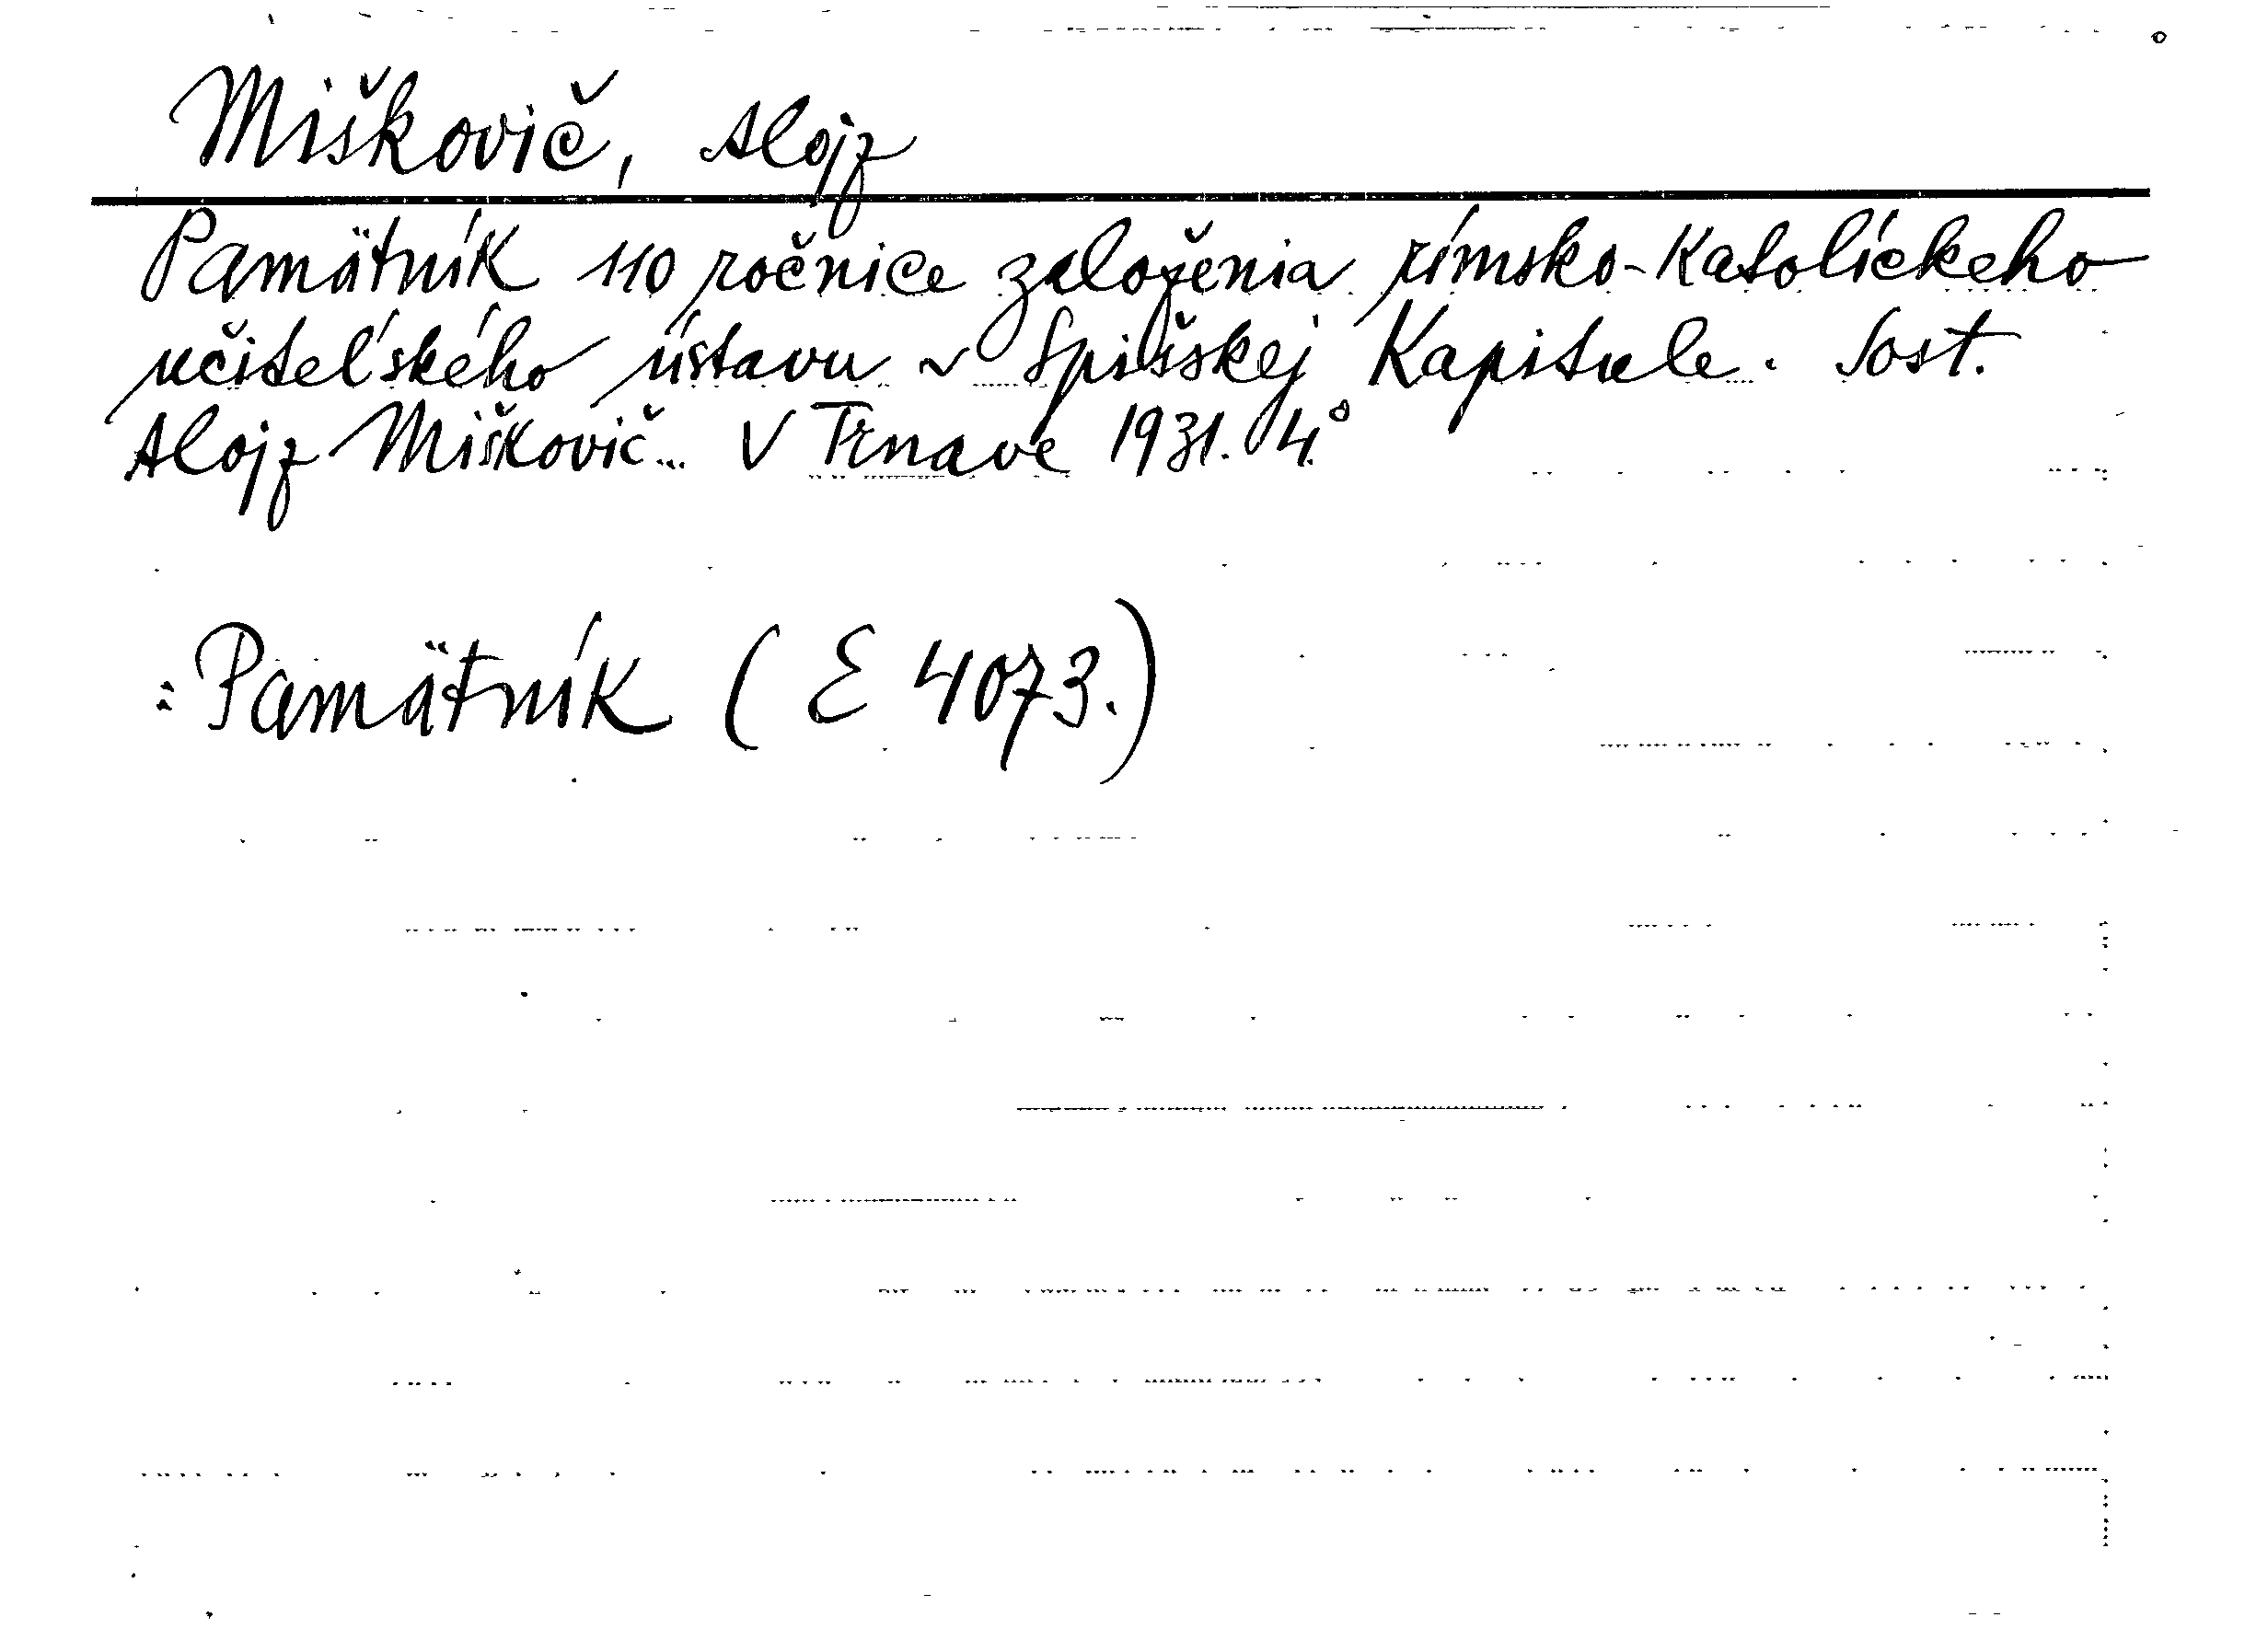 Miškovič, Alojz
Pamätník 110 ročnice založenia rímsko-Katolíckeho
učiteľského ústavu v Spišskej Kapitule. Sost.
Alojz Miškovič. V Trnave 1931. 4°
: Pamätník (E 4073.)